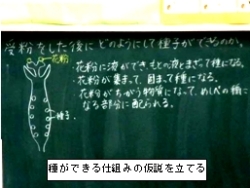 受粉をした後にどのようにして種子ができるのか。
花粉
・花粉に液ができ、もとの液とまざって種になる。
・花粉が集まって、固まって種になる。
・花粉がちがう物質になって、めしべの種に
なる部分に配られる。
種子
種ができる仕組みの仮説を立てる